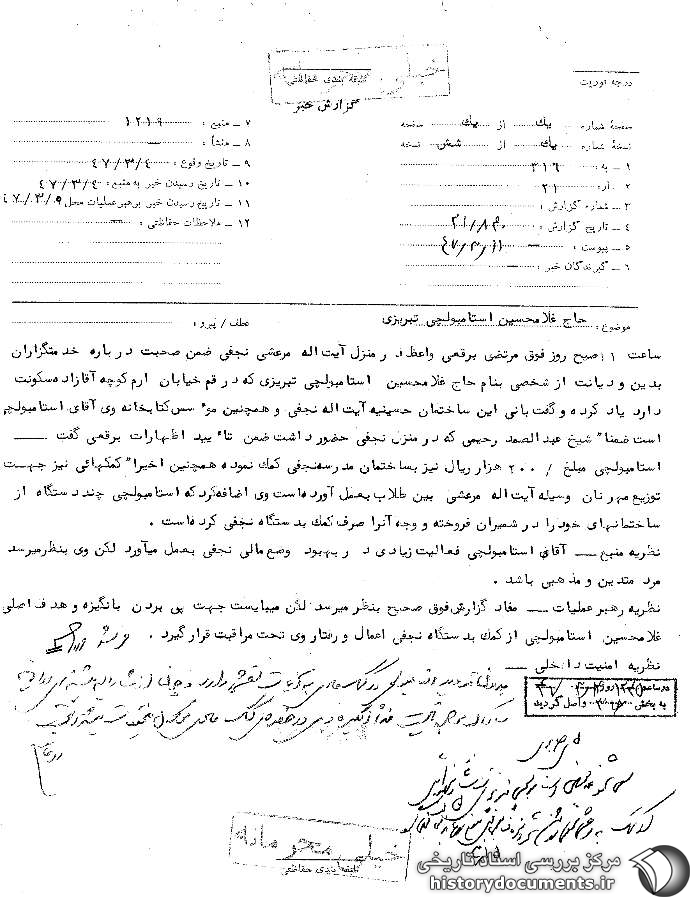 خیلی محرمانه
طبقه بندی حفاظتی
گزارش خبر
درجه فوریت
صفحه شماره یك از یك صفحه
نسخه شماره یك از شش نسخه
۱ ــ به : ۳۱۶
۲ ــ از : ۲۱
۳ ــ شماره گزارش :
۴ ــ تاریخ گزارش :
۵ ــ پیوست :
۶ ــ گیرندگان خبر :
۷ ــ منبع : ۱۲۱۹
۸ ــ منشأ :
۹ ــ تاریخ وقوع : ۴۷/۳/۴
۱۰ ــ تاریخ رسیدن خبر به منبع : ۴۷/۳/۴
۱۱ ــ تاریخ رسیدن خبر برهبرعملیات محل ۴۷/۳/۹
۱۲ ــ ملاحظات حفاظتی :
موضوع : حاج غلامحسین استامبولچی تبریزی
عطف / پیرو :
ساعت ۱۰صبح روز فوق مرتضی برقعی واعظ در منزل آیت اله مرعشی نجفی ضمن صحبت درباره خدمتگزاران
بدین و دیانت از شخصی بنام حاج غلامحسین استامبولچی تبریزی که در قم خیابان ارم کوچه آقازاده سکونت
دارد یاد کرده و گفت بانی این ساختمان حسینیه آیت اله نجفی و همچنین موسس کتابخانه وی آقای استامبولچی
است ضمنا" شیخ عبدالصمد رحیمی که در منزل نجفی حضور داشت ضمن تائید اظهارات برقعی گفت ــ
استامبولچی مبلغ /۲۰۰ هزار ریال نیز بساختمان مدرسه نجفی کمك نموده همچنین اخیرا" کمکهائی نیز جهت
توزیع مهر نان وسیله آیت اله مرعشی بین طلاب بعمل آورده است وی اضافه کرد که استامبولچی چند دستگاه از
ساختمانهای خود را در شمیران فروخته و وجه آنرا صرف کمك بدستگاه نجفی کرده است .
نظریه منبع ــ آقای استامبولچی فعالیت زیادی در بهبود وضع مالی نجفی بعمل میآورد لکن وی بنظر میرسد
مرد متدین و مذهبی باشد .
نظریه رهبر عملیات ــ مفاد گزارش فوق صحیح بنظر میرسد لکن میبایست جهت پی بردن بانگیزه و هدف اصلی
غلامحسین استامبولچی از کمك بدستگاه نجفی اعمال و رفتار وی تحت مراقبت قرار گیرد .
نظریه امنیت داخلی ــ
در ساعت روز
به بخش واصل گردید
خیلی محرمانه
طبقه بندی حفاظتی
مرکز بررسی اسناد تاریخی
historydocuments.ir